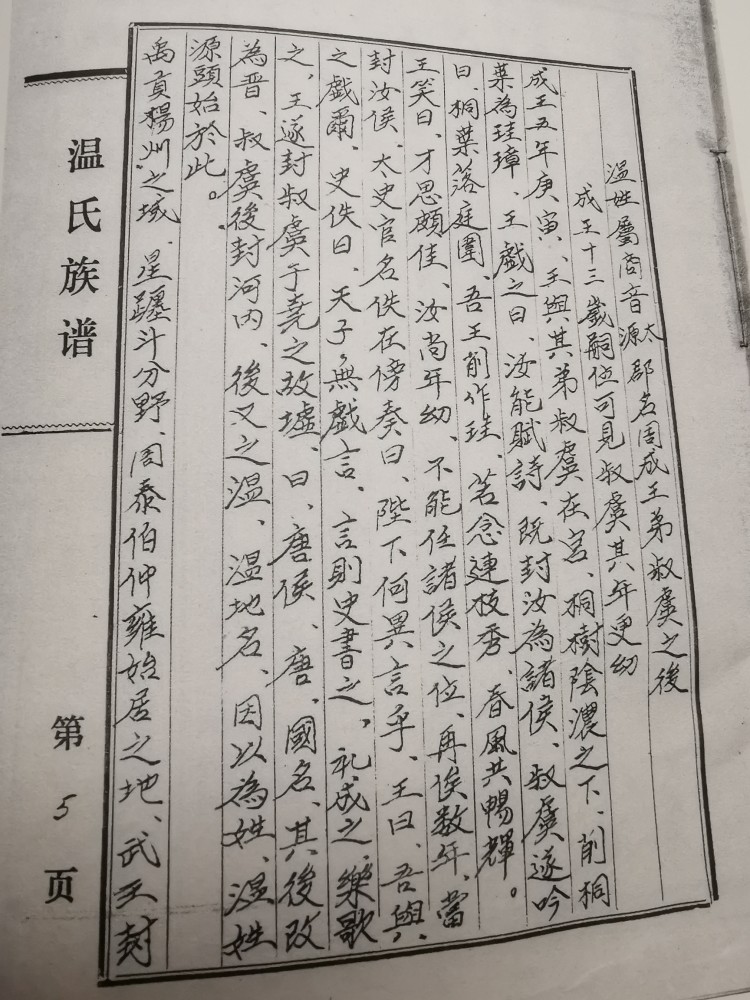 温姓屬商音太源郡名周成王弟叔虞之後
成王十三嵗嗣位可見叔虞其年更幼
成王五年庚寅、王與其弟叔虞在宫、桐樹陰濃之下、削桐
葉為珪璋、王戲之曰、汝能賦詩、既封汝為諸侯、叔虞遂吟
曰、桐葉落庭圍、吾王削作珪、若念連枝秀、春風共暢輝。
王笑曰、才思頗佳、汝尚年幼、不能任諸侯之位、再俟数年、當
封汝侯、太史官名佚在傍奏曰、陛下何異言乎、王曰、吾與
之戲爾、史佚曰、天子無戲言、言則史書之，礼成之，樂歌
之，王遂封叔虞于堯之故墟、曰、唐侯、唐、國名、其後改
為晋、叔虞後封河内、後又之温、温地名、因以為姓、温姓
源頭始於此。
禹貢楊州之域、星躔斗分野、周泰伯仲雍始居之地、武王封
温氏族谱
第5页